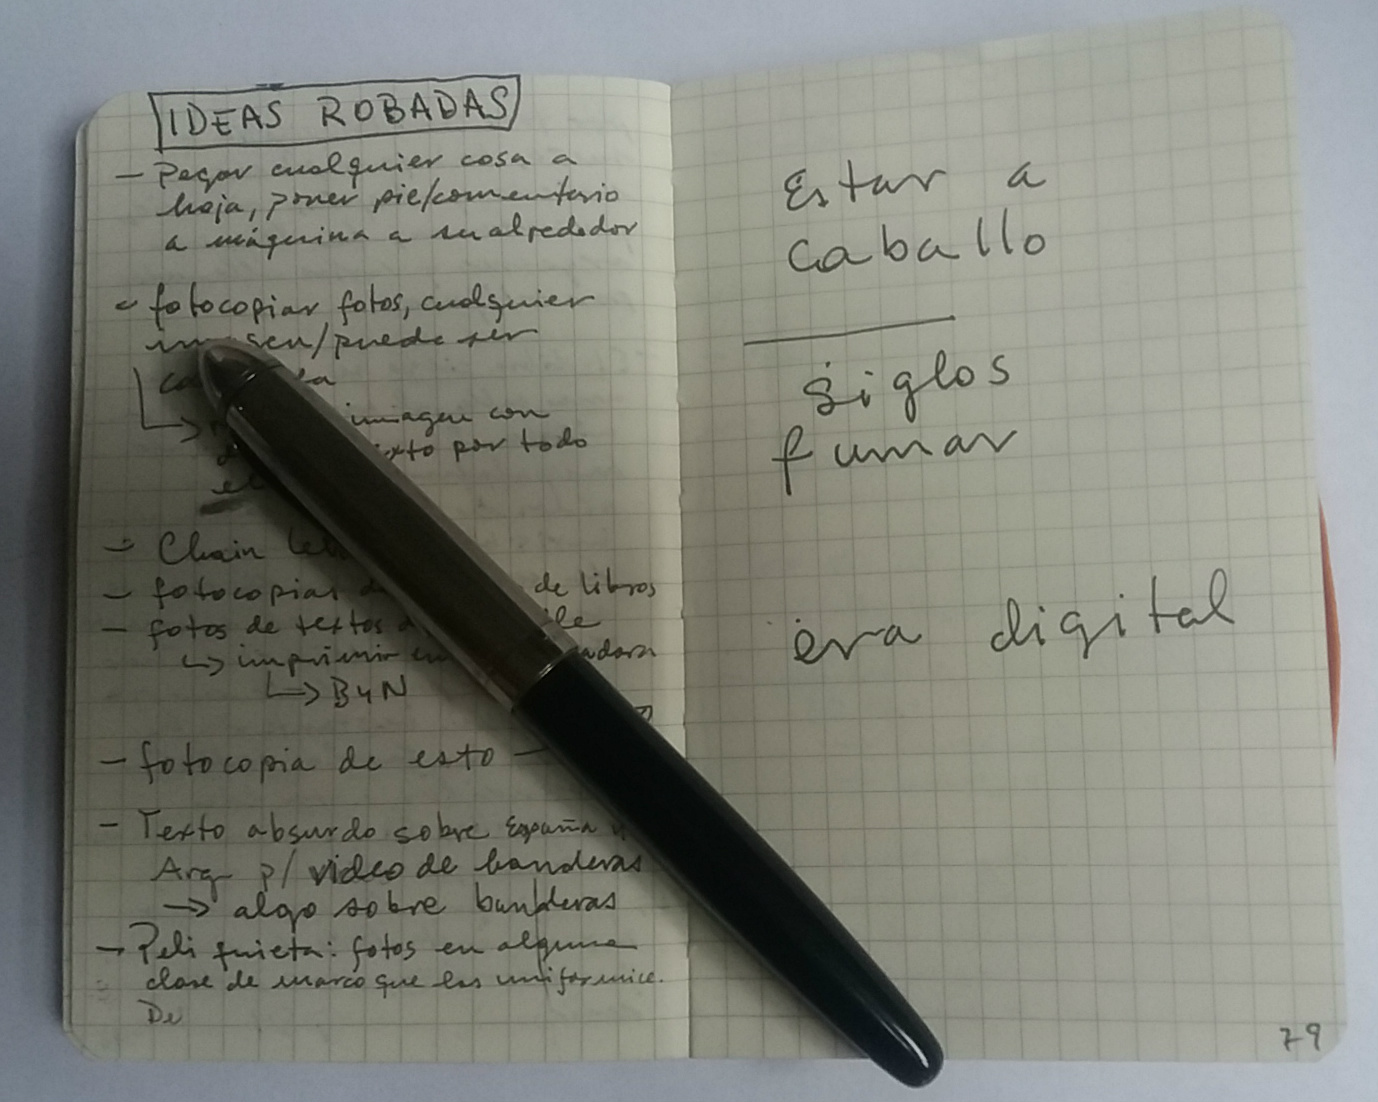 IDEAS ROBADAS
- Pegar cualquier cosa a
hoja, poner pie/comentario
a máquina a su alrededor
- fotocopiar fotos, cualquier
imagen/puede ser
imagen con
por todo
- Chain
- fotocopias de libros
- fotos de textos
↳ imprimir en
↳ ByN
- fotocopia de esto -
- Texto absurdo sobre España y
Arg p/ video de banderas
→ algo sobre banderas
- Peli quieta: fotos en alguna
clase de marco que las uniformice.
De
Estar a
caballo
siglos
fumar
era digital
79